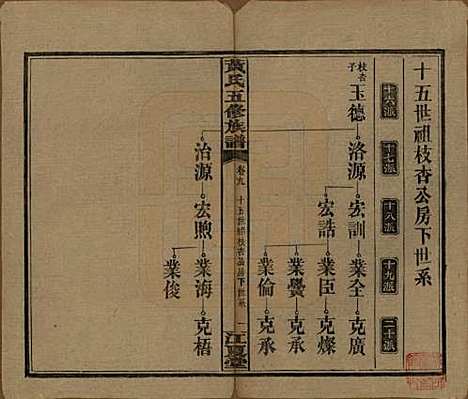 十五世祖枝杏公房下世系
十六派
十七派
十八派
十九派
二十派
枝杏子
玉德
洛源
宏訓
業全
克廣
宏誥
業臣
克燦
業爨
克承
業倫
克承
黃氏五修族譜
卷九
十五世祖枝杏公房下世系
一
江夏堂
治源
宏煦
業海
克梧
業俊